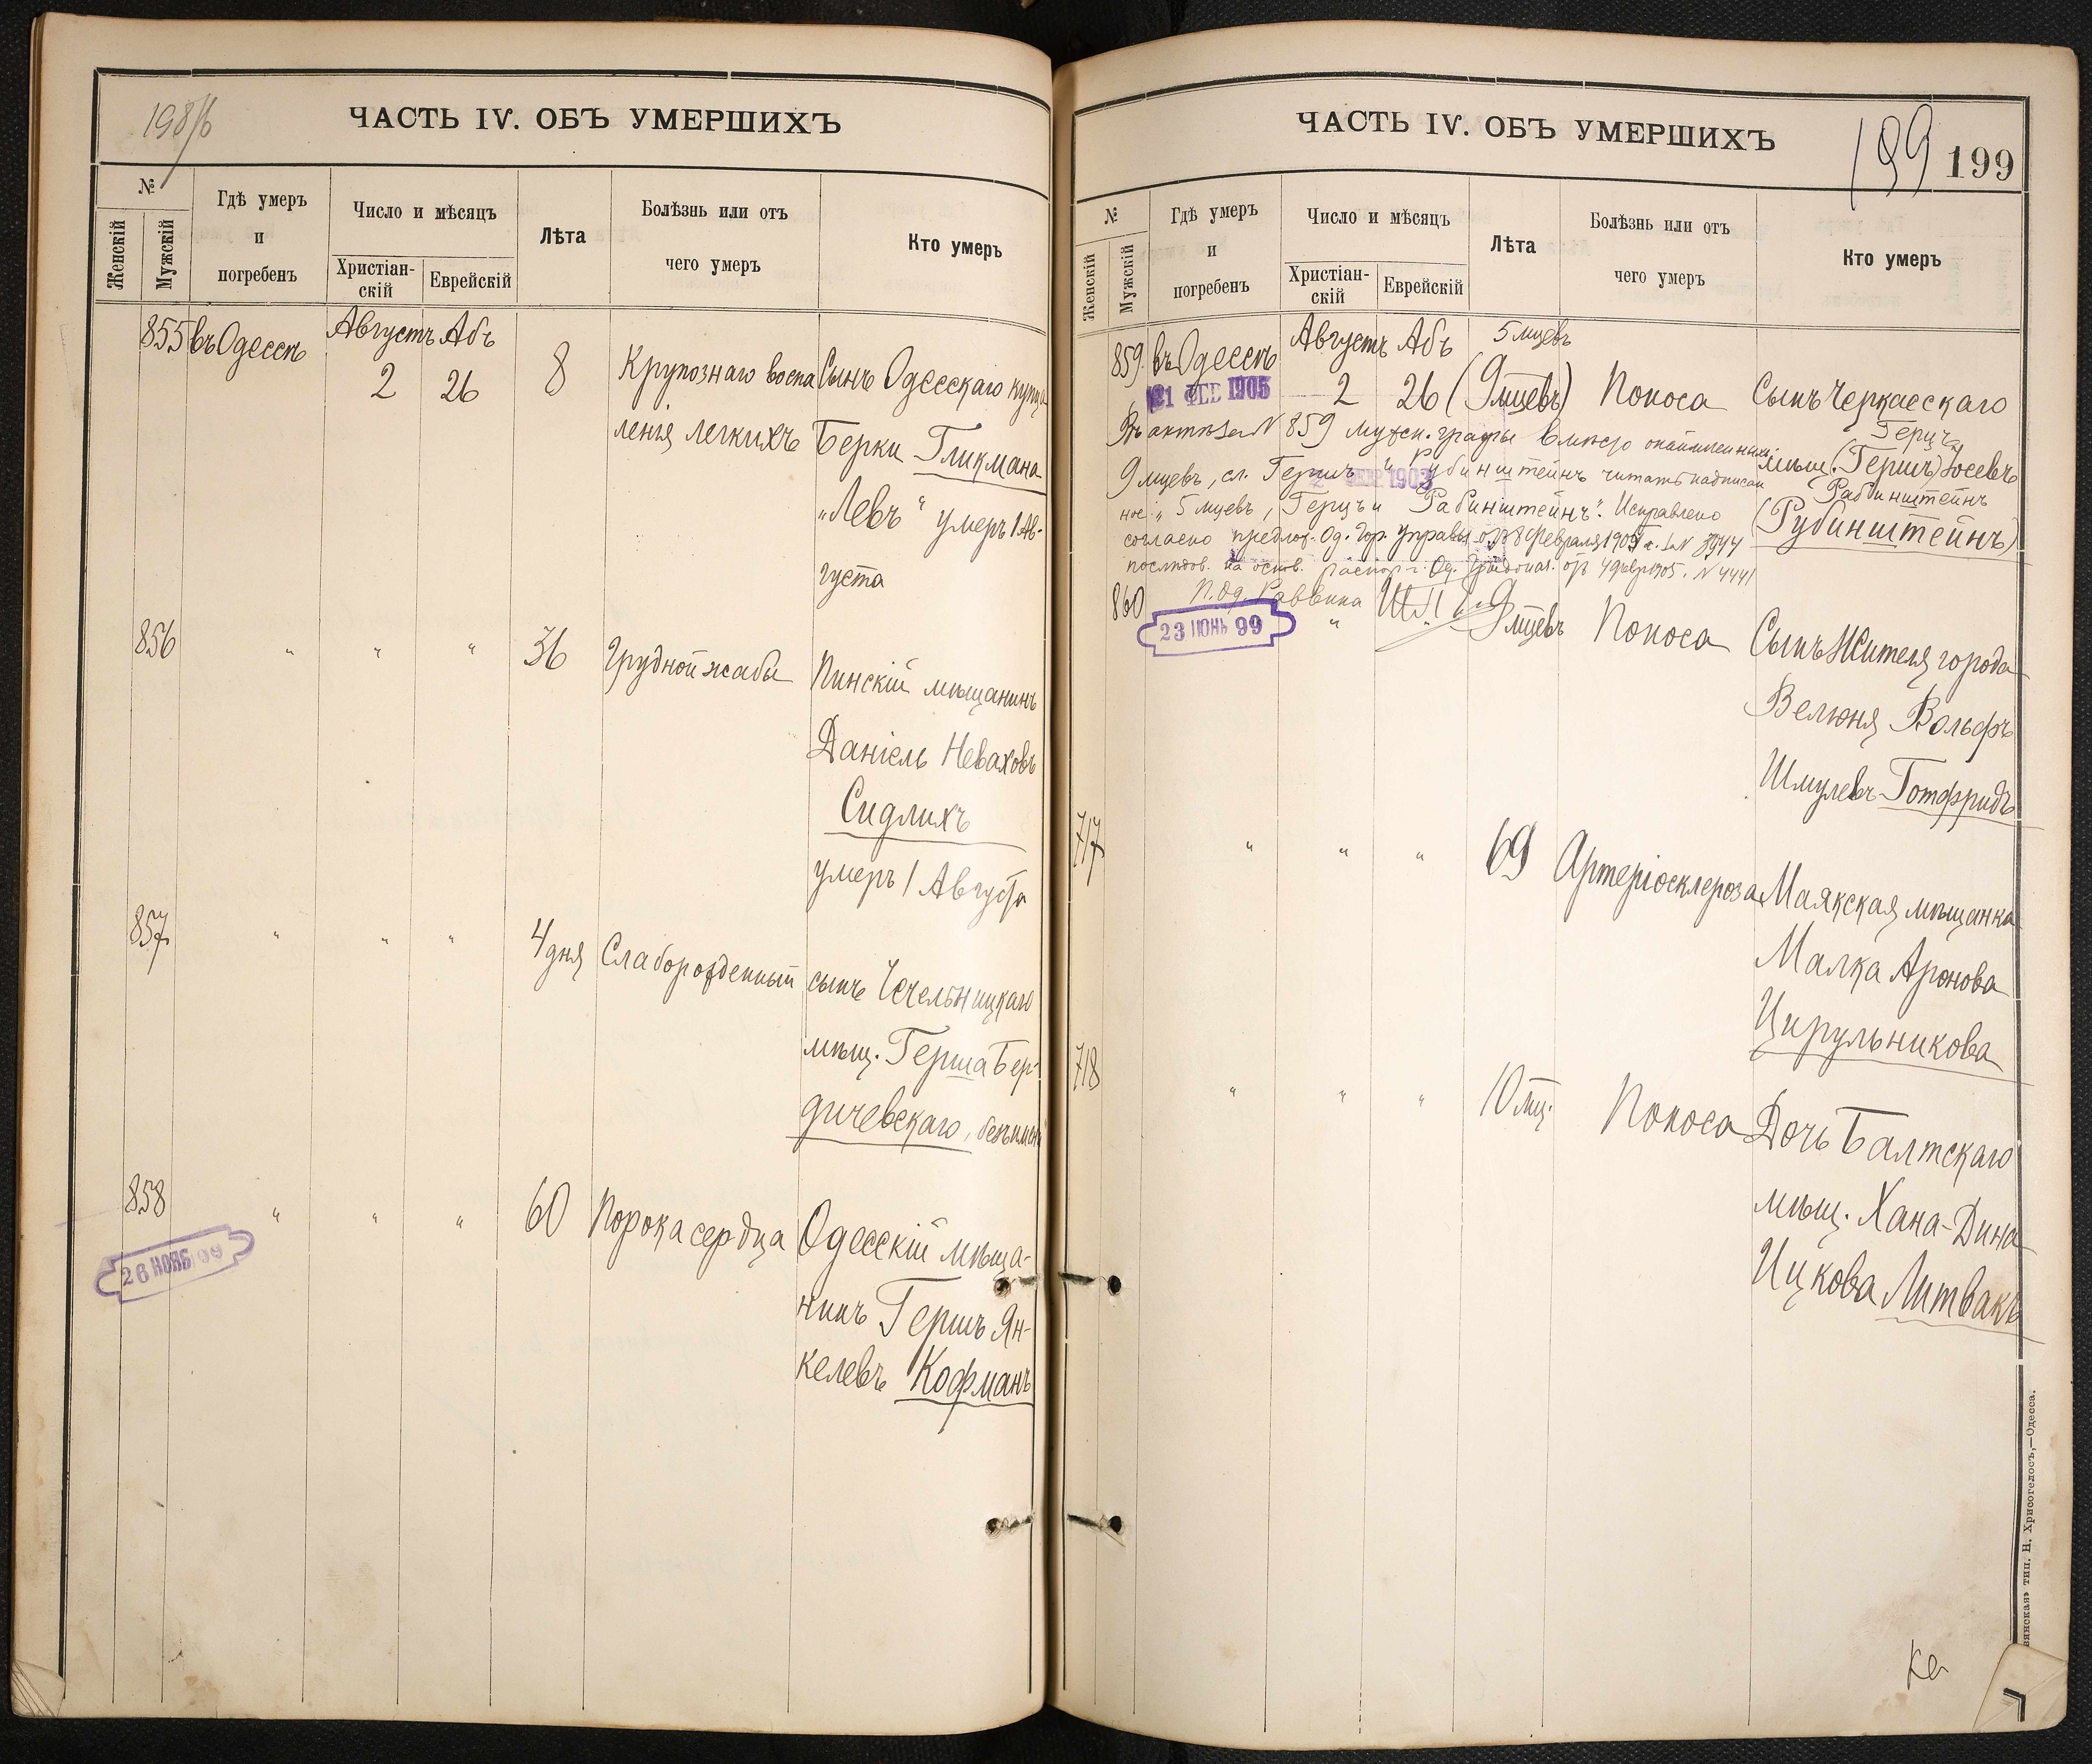 198/б
ЧАСТЬ IV. ОБЪ УМЕРШИХЪ
№
Женскій
Мужскій
Гдѣ умеръ
и
погребенъ
Число и мѣсяцъ
Христіан-
скій
Еврейскій
Лѣта
Болѣзнь или отъ
чего умеръ
Кто умеръ
855 въ Одессѣ Августъ Абъ
2 26 8 Крупознаго воспа Сынъ Одесскаго купца
ленія легкихъ Берки Гликмана
„Левъ“ умеръ 1 Ав-
густа
856 " " " 36 Грудной жабы Пинскій мѣщанинъ
Даніель Неваховъ
Сидлихъ
умеръ 1 Августа
857 " " " 4 дня Слаборожденный сынъ Чечельницкаго
мѣщ. Герша Бер-
дичевскаго, безъимен
858 " " " 60 Порока сердца Одесскій мѣща-
26 ІЮНЬ 99
нинъ Гершъ Ян-
келевъ Кофманъ
ЧАСТЬ IV. ОБЪ УМЕРШИХЪ
199 199
№
Женскій
Мужскій
Гдѣ умеръ
и
погребенъ
Число и мѣсяцъ
Христіан-
скій
Еврейскій
Лѣта
Болѣзнь или отъ
чего умеръ
Кто умеръ
859 въ Одессѣ Августъ Абъ 5 мцевъ
21 ФЕВ 1905
2 26 (9 мцевъ) Поноса Сынъ Черкасскаго
Герцъ
мѣщ. (Гершъ) Іосевъ
Рабинштейнъ
(Рубинштейнъ)
Въ актѣ за N 859 мужск. графы вмѣсто окаймленныхъ
9 мцевъ, сл. Гершъ и Рубинштейнъ читать надписан
ное „5 мцевъ, Герцъ и Рабинштейнъ“. Исправлено
согласно предлож. Од. Гор. Управы отъ 8 Февраля 1905 г. за N 3944
послѣдов. на основ. распор. г. Од. Градонач. отъ 4 февр 1905. N 4441
П. Од. Раввина
860 " 9 мцевъ Поноса Сынъ Жителя города
23 ІЮНЬ 99
Велюня Вольфъ
Шмулевъ Готфридъ
717 " " " 69 Артеріосклероза Маякская мѣщанка
Малка Аронова
Цирульникова
718 " " " 10 мц. Поноса Дочь Балтскаго
мѣщ. Хана-Дина
Ицкова Литвакъ
вянская» тип. Н. Хрисогелосъ,—Одесса.